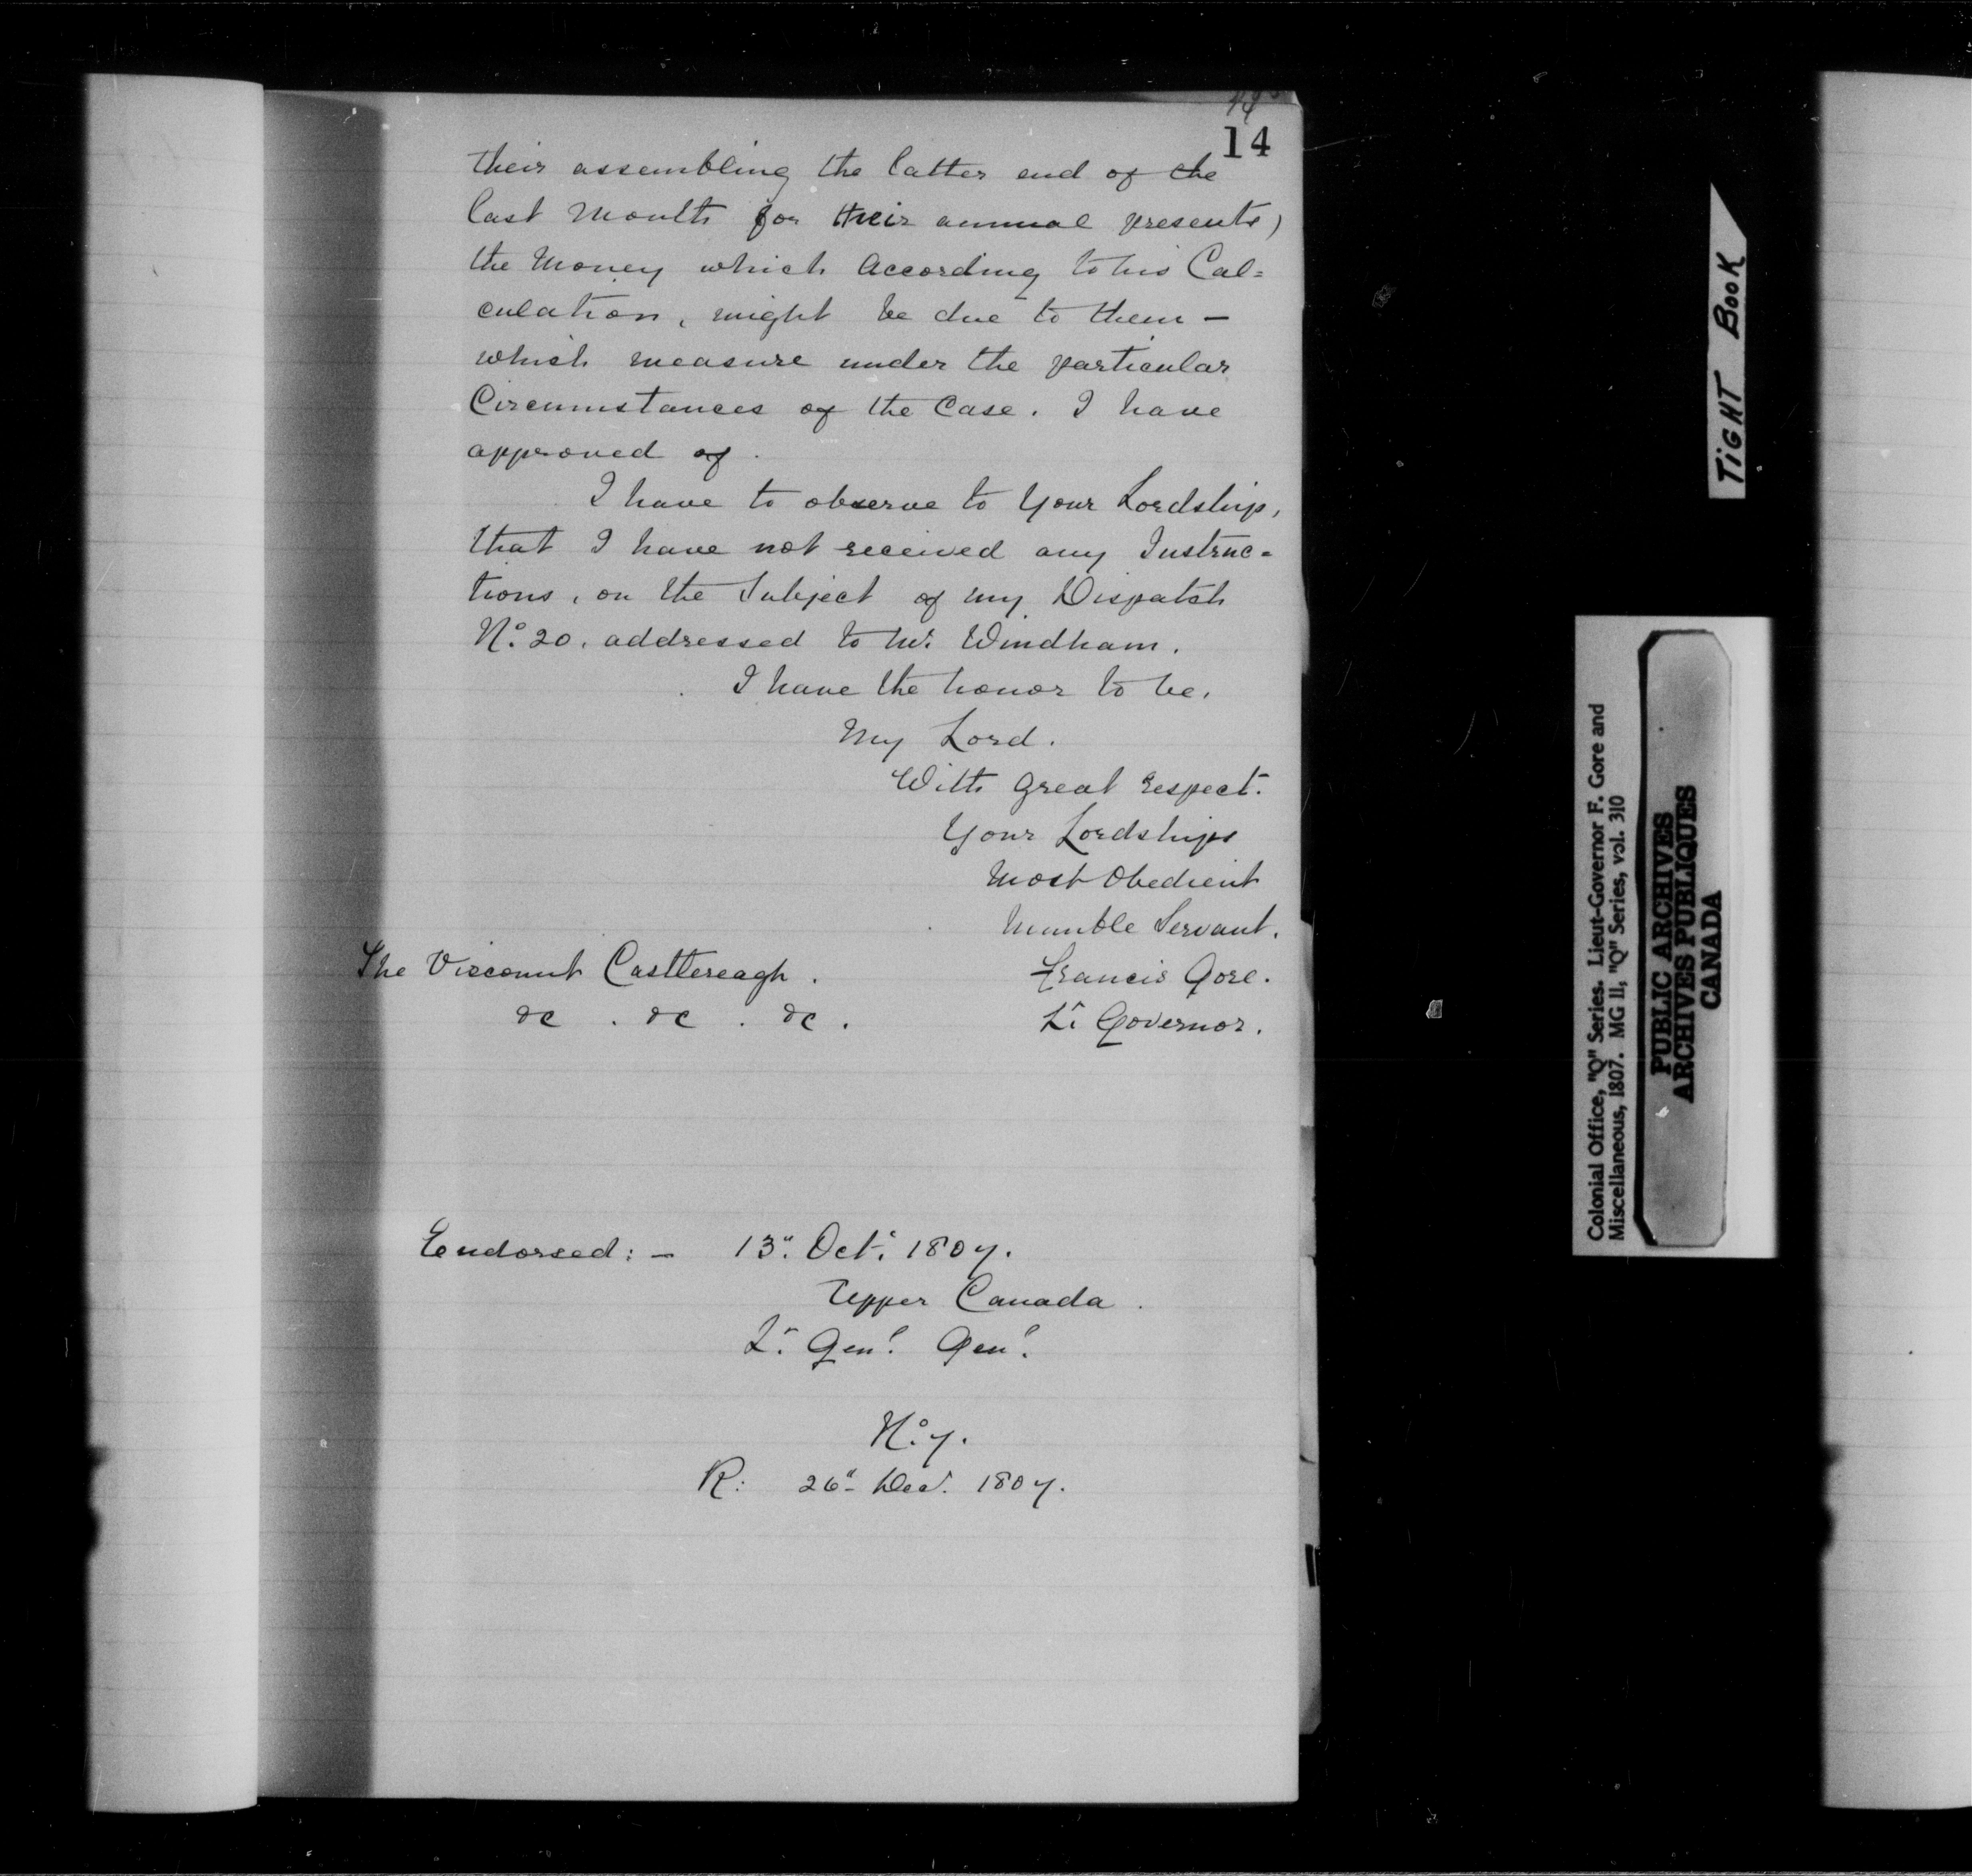 14
their assembling the latter end of the
last Month for their annual presents)
the Money which According to his Cal=
culation, might be due to them —
which measure under the particular
Circumstances of the Case. I have
approved of.
I have to observe to Your Lordship,
that I have not received any Instruc=
tions, on the Subject of my Dispatch
No. 20. addressed to Mr. Windham.
I have the honor to be,
My Lord.
With great respect.
Your Lordships
Most Obedient
Humble Servant.
The Viscount Castlereagh.
Francis Gore.
&c . &c . &c .
Lt. Governor.
Endorsed: — 13". Oct. 1807.
Upper Canada.
Lt. Genl. Genl.
No. 7.
R: 26" Decr. 1807.
TIGHT BOOK
Colonial Office, "Q" Series. Lieut-Governor F. Gore and
Miscellaneous, 1807. MG 11, "Q" Series, vol. 310
PUBLIC ARCHIVES
ARCHIVES PUBLIQUES
CANADA